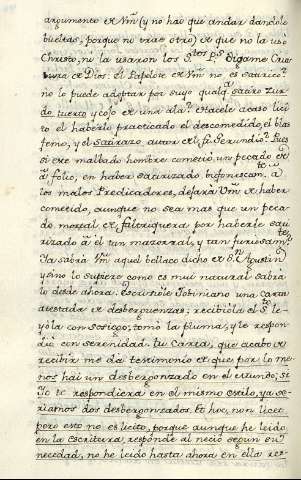 argumento de Vm̃ (y no hai que andar dandole
bueltas, porque no trae otro) es que no la usó
Christo, ni la usaron los S.tos P.s Digame Cria
tura de Dios. El Papelote de Vm̃ no, es satirico?
no lo puede adoptar por suyo qualq.a satiro zur-
do tuerto y cojo de una ala? Hacele acaso lici
to el haberlo practicado el descomedido, el blas
femo, y el satirazo autor de Fr. Gerundio? Pues
si este malbado hombre cometió un pecado de
à folio, en haber satirizado bufonescam.te à
los malos Predicadores, dejará Vm̃ de haber
cometido, aunque no sea mas que un peca
do mortal de faltriquera por haberle sati
rizado à èl tan mazorral, y tan furiosam.te?
Ya sabra Vm̃ aquel bellaco dicho de S.n Agustin
y sino lo supiere como es mui natural sabra
lo desde ahora. Escriviole Joviniano una carta
atestada de desberguenzas; recibiola el S.to le-
yóla con sosiego; tomó la pluma, y le respon-
dió con serenidad. tu Carta, que acabo de
recibir me da testimonio de que por lo me-
nos hai un desbergonzado en el Mundo; si
Yo te respondiera en el mismo estilo, ya se-
riamos dos desbergonzados. Et hoc, non licet.
pero esto no es licito, porque aunque he leido
en la Escritura, responde al necio segun su
necedad, no he leido hasta ahora en ella res-